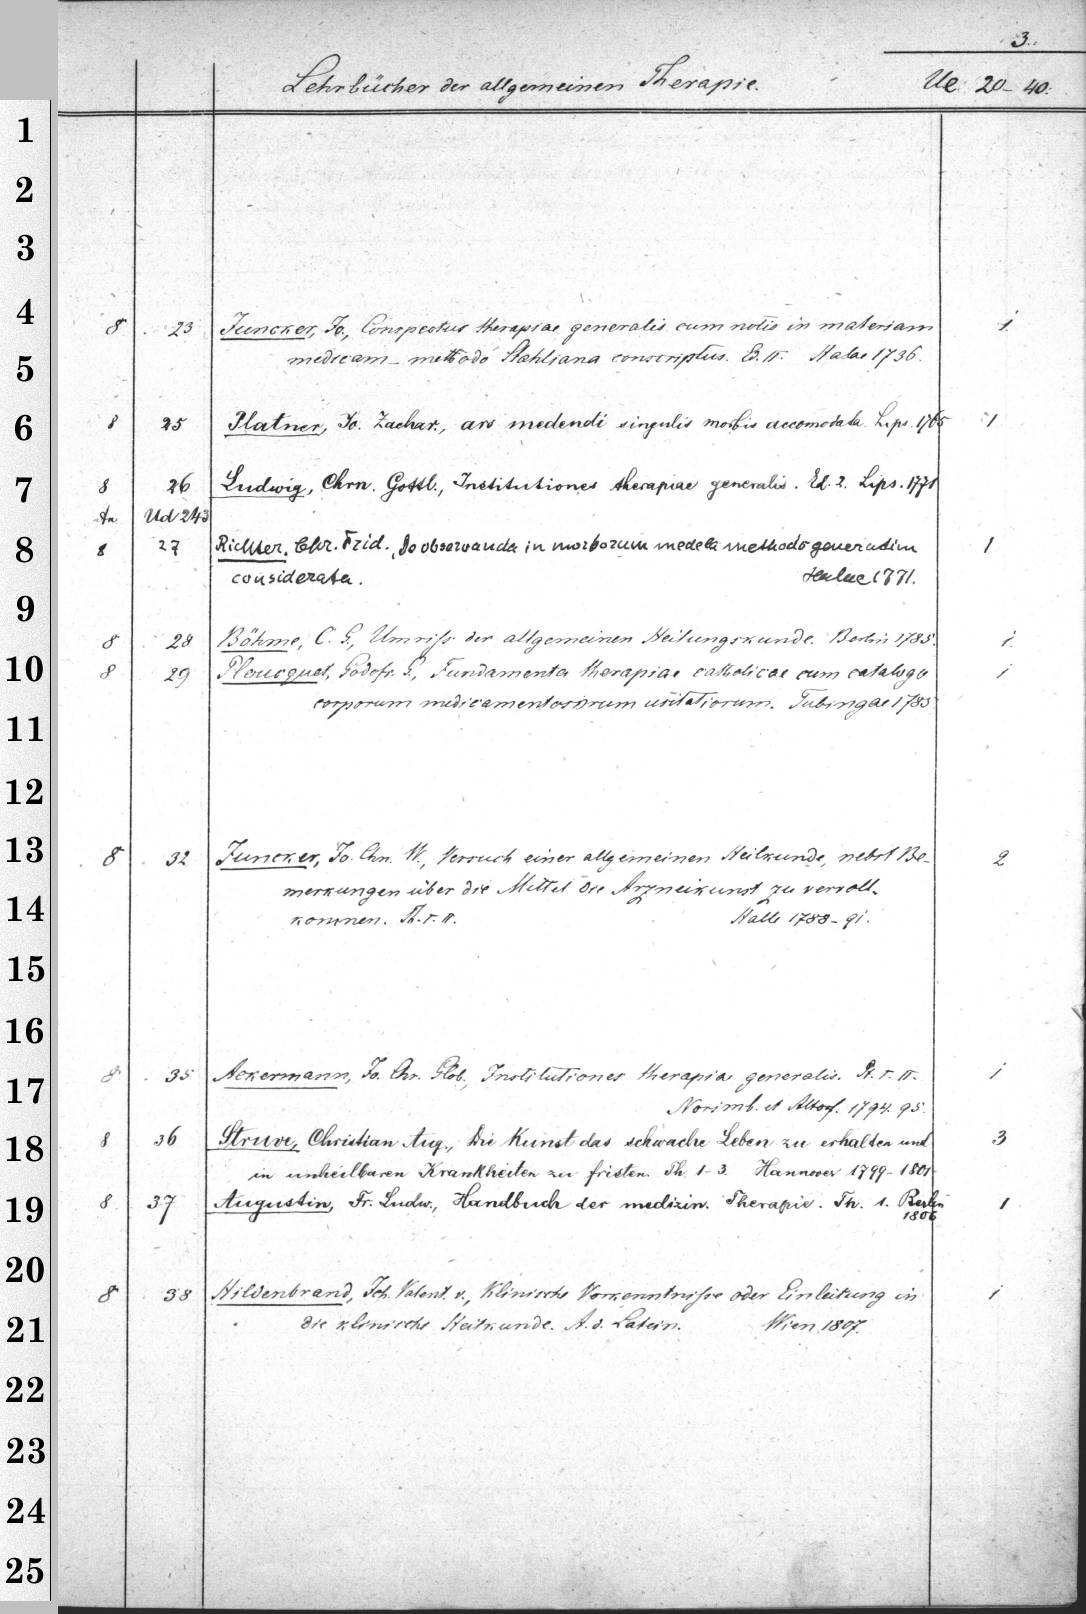 3.
Lehrbücher der allgemeinen Therapie. Ue 20-40.
1
2
3
4
8 23 Juncker, Jo., Conspectus therapiae generalis cum notis in materiam 1
medicam methodo Stahliana conscriptus. Ed. II. Halae 1736.
5
6
8 25 Platner, Jo. Zachar., ars medendi singulis morbis accomodata. Lips. 1765 1
7
8 26 Ludwig, Chrn. Gottl., Institutiones therapiae generalis. Ed. 2. Lips. 1771
An Ud 243
8
8 27 Richter, Chr. Frid., De observanda in morborum medela methodo generatim 1
considerata. Halae 1771.
9
8 28 Böhme, C. G., Umriss der allgemeinen Heilungskunde. Berlin 1785. 1
10
8 29 Ploucquet, Godofr. G., Fundamenta therapiae catholicae cum catalogo 1
corporum medicamentosorum usitatiorum. Tubingae 1785
11
12
13
8 32 Juncker, Jo. Chn. W., Versuch einer allgemeinen Heilkunde, nebst Be- 2
merkungen über die Mittel die Arzneikunst zu vervoll-
14
kommen. Th. I. II. Halle 1788-91.
15
16
17
8 35 Ackermann, Jo. Chr. Glob., Institutiones therapia generalis. Pt. I. II. 1
Norimb. et Altorf. 1794. 95.
18
8 36 Struve, Christian Aug., Die Kunst das schwache Leben zu erhalten und 3
in unheilbaren Krankheiten zu fristen. Th. 1-3. Hannover 1799-1801
19
8 37 Augustin, Fr. Ludw., Handbuch der medizin. Therapie. Th. 1. Berlin 1
1806
20
8 38 Hildenbrand, Joh. Valent. v., Klinische Vorkenntnisse oder Einleitung in 1
die klinische Heilkunde. A. d. Latein. Wien 1807.
21
22
23
24
25